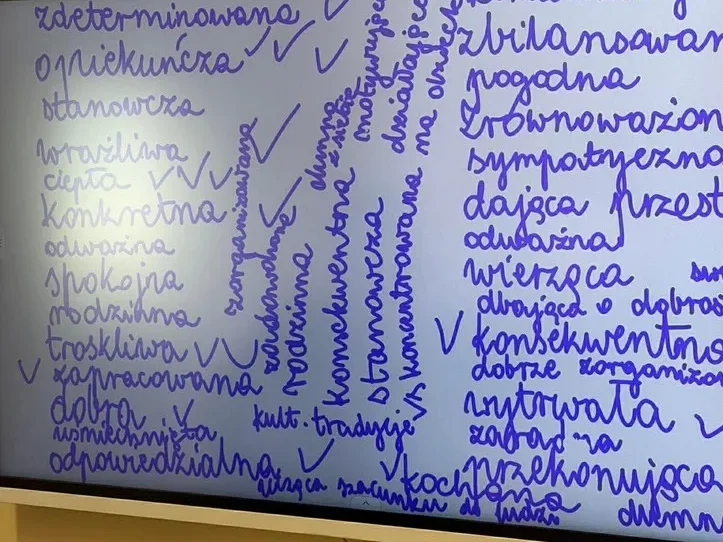 zdeterminowana
opiekuńcza
stanowcza
wrażliwa
ciepła
konkretna
odważna
spokojna
rodzinna
troskliwa
zapracowana
dobra
uśmiechnięta
odpowiedzialna
zorganizowana
rodzinna
konsekwentna
dumna z siebie
stanowcza
motywująca
działająca
skoncentrowana na
kult. tradycje
ucząca szacunku do ludzi
kochana
zbilansowan
pogodna
zrównoważon
sympatyczna
dająca przest
odważna
wierząca
dbająca o dobros
konsekwentna
dobrze zorganizow
wytrwała
zabawna
przekonująca
dumn